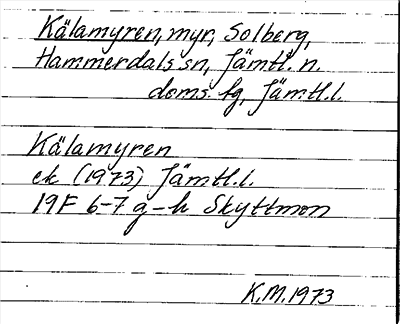 Kälamyren, myr, Solberg,
Hammerdals sn, Jämtl. n.
doms. fg, Jämtl.l.
Kälamyren
ek (1973) Jämtl.l.
19F 6-7 g-h Skyttmon
K.M. 1973